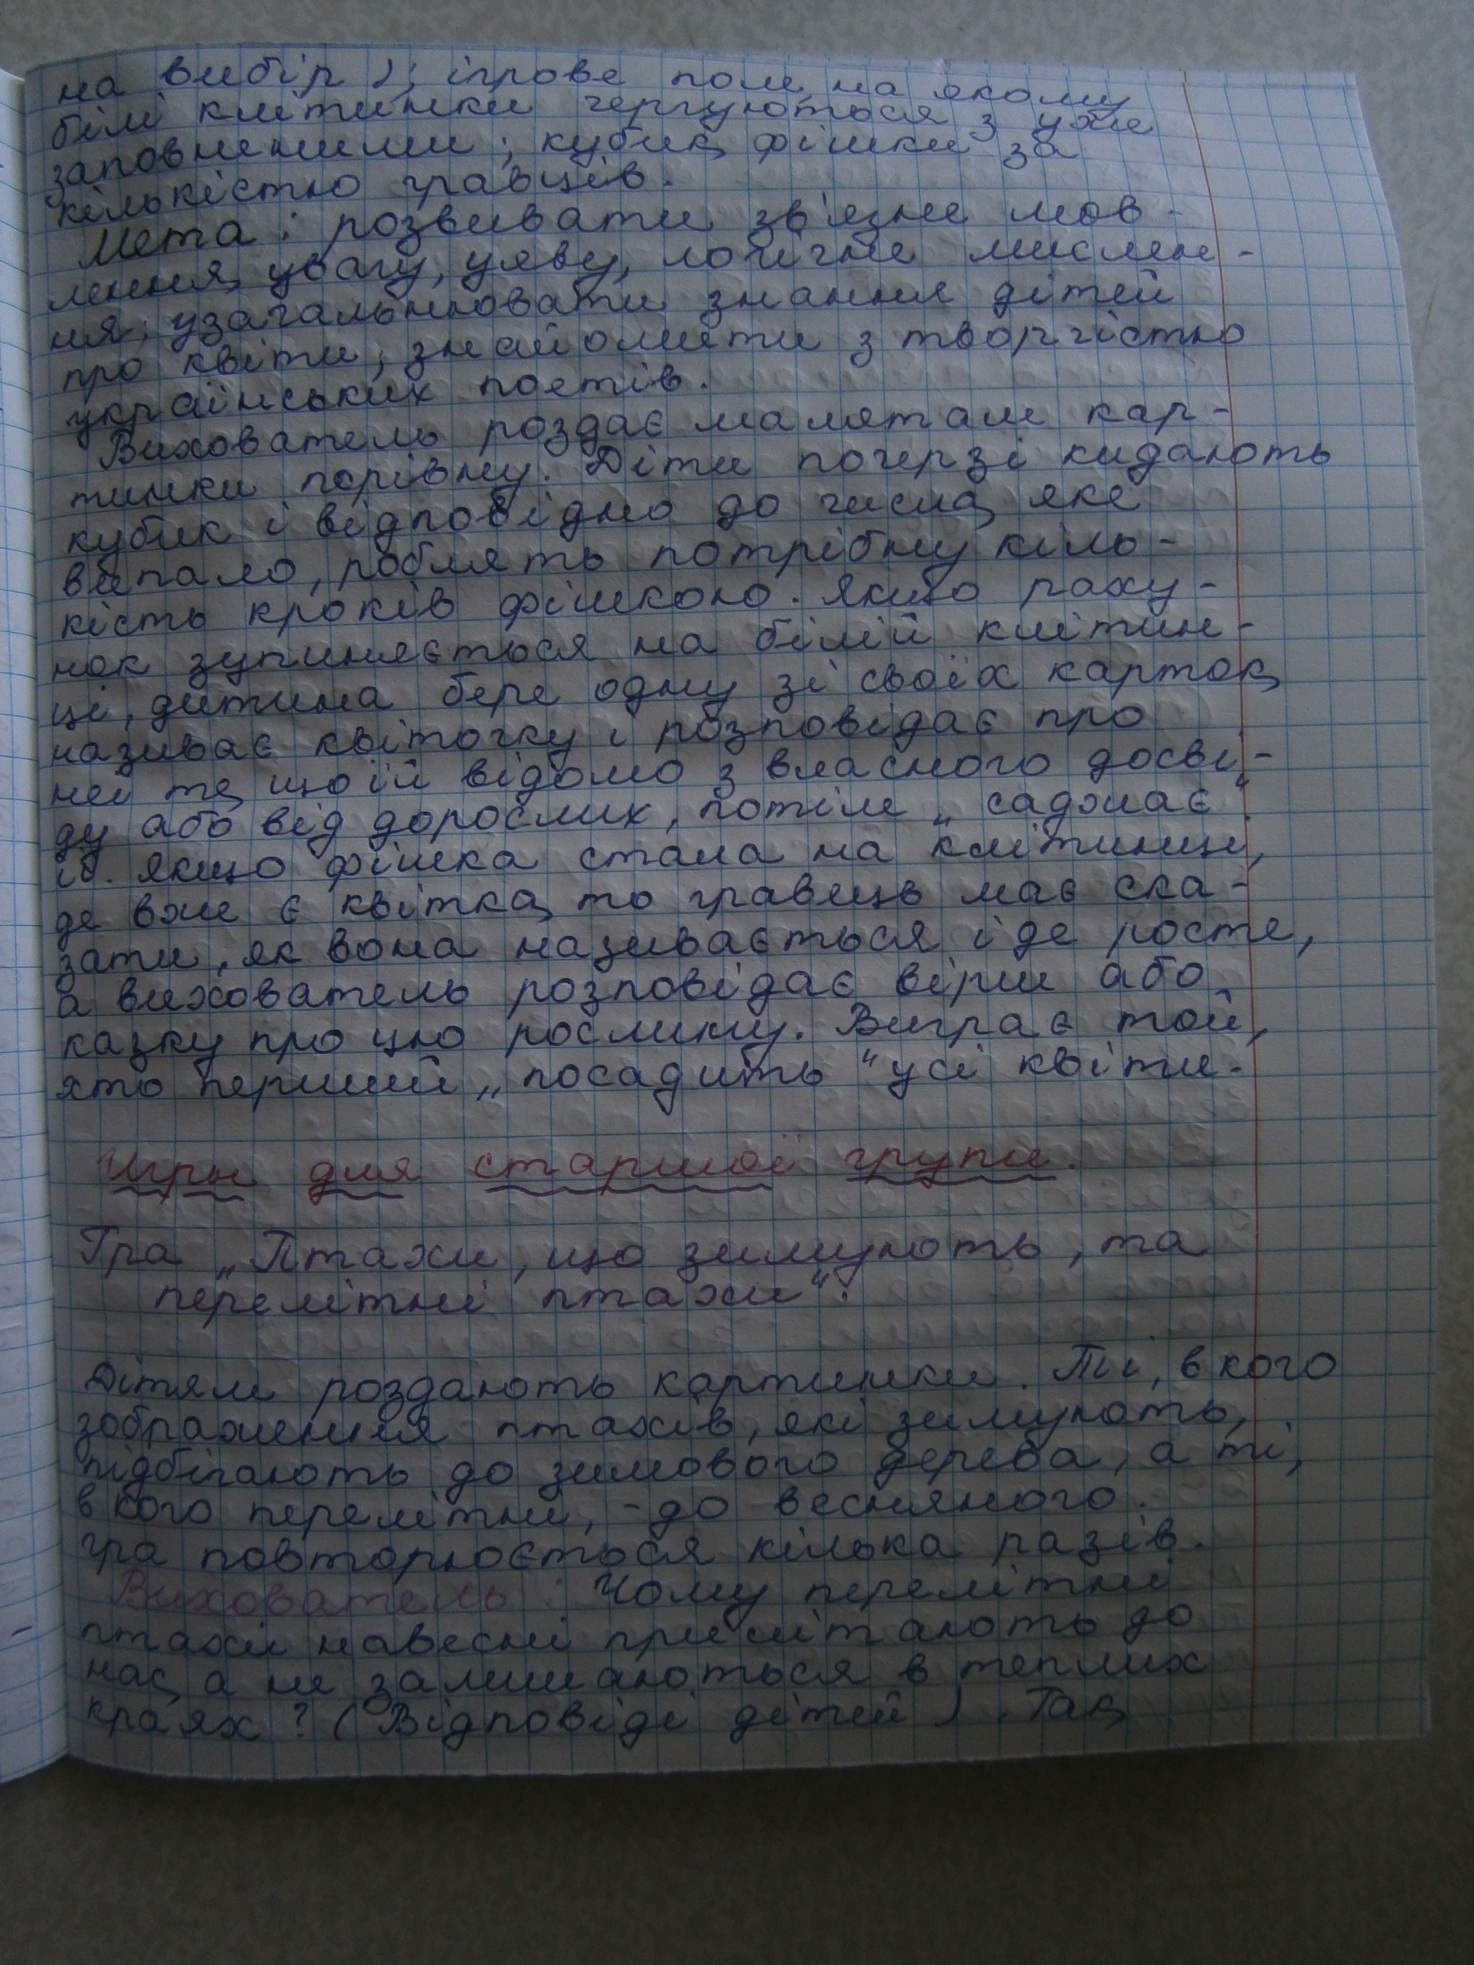 на вибір ); ігрове поле, на якому
білі клітинки чергуються з уже
заповненими; кубик, фішки за
кількістю гравців.
Мета: розвивати зв'язне мов-
лення, увагу, уяву, логічне мислен-
ня; узагальнювати знання дітей
про квіти; знайомити з творчістю
українських поетів.
Вихователь роздає малятам кар-
тинки порівну. Діти почерзі кидають
кубик і відповідно до числа, яке
випало, роблять потрібну кіль-
кість кроків фішкою. Якщо раху-
нок зупиняється на білій клітин-
ці, дитина бере одну зі своїх карток,
називає квіточку і розповідає про
неї те, що їй відомо з власного досві-
ду або від дорослих, потім „ саджає “
її. Якщо фішка стала на клітинци,
де вже є квітка, то гравець має ска-
зати, як вона називається і де росте,
а вихователь розповідає вірш або
казку про цю рослину. Виграє той,
хто перший „ посадить “ усі квіти.
Игры для старшої групи.
Гра „Птахи, що зимують, та
перелітні птахи“.
Дітям роздають картинки. Ті, в кого
зображення птахів, які зимують,
підбігають до зимового дерева, а ті,
в кого перелітні, - до весняного.
гра повторюється кілька разів.
Вихователь: Чому перелітні
птахи навесні прилітають до
нас, а не залишаються в теплих
краях ? ( Відповіді дітей ) . Так,